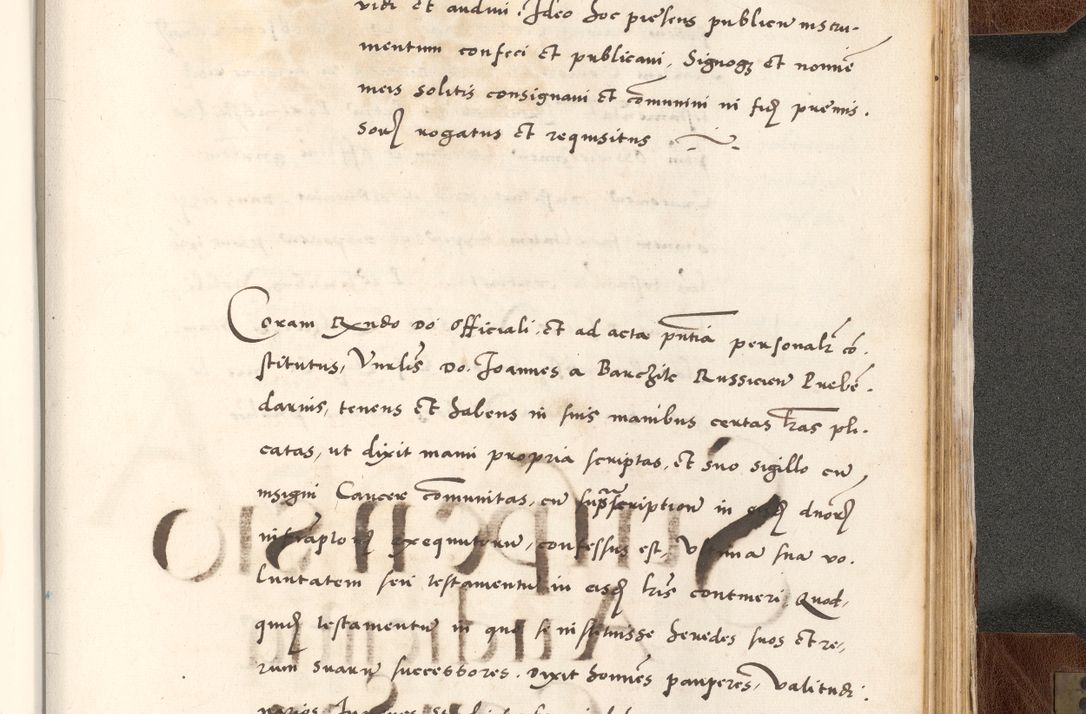 vidi et audivi. Ideo hoc presens publicu instru-
mentum confeci et publicavi, Signoq₃ et nomine
meis solitis consignavi et comunivi in fidē premis-
sorū rogatus et requisitus
Coram Rxndo do officiali, et ad acta pntia personalr cō-
stitutus, Vnrlis do. Joannes a Barchile Russicien Prebē-
darius, tenens et habens in suis manibus certas lras pli-
catas, ut dixit manu propria scriptas, et suo sigillo cu
insigni Cancer comunitas, cu suprascriptione in eisdē dnorū
infrascptorū exequutoru, confessus est, Vltima sua vo-
luntatem seu testamentu in eisdē lris contineri, Quod-
quidē testamentu in quo se instituisse heredes suos et re-
rum suaru successores, dixit homines pauperes, Valitudi-